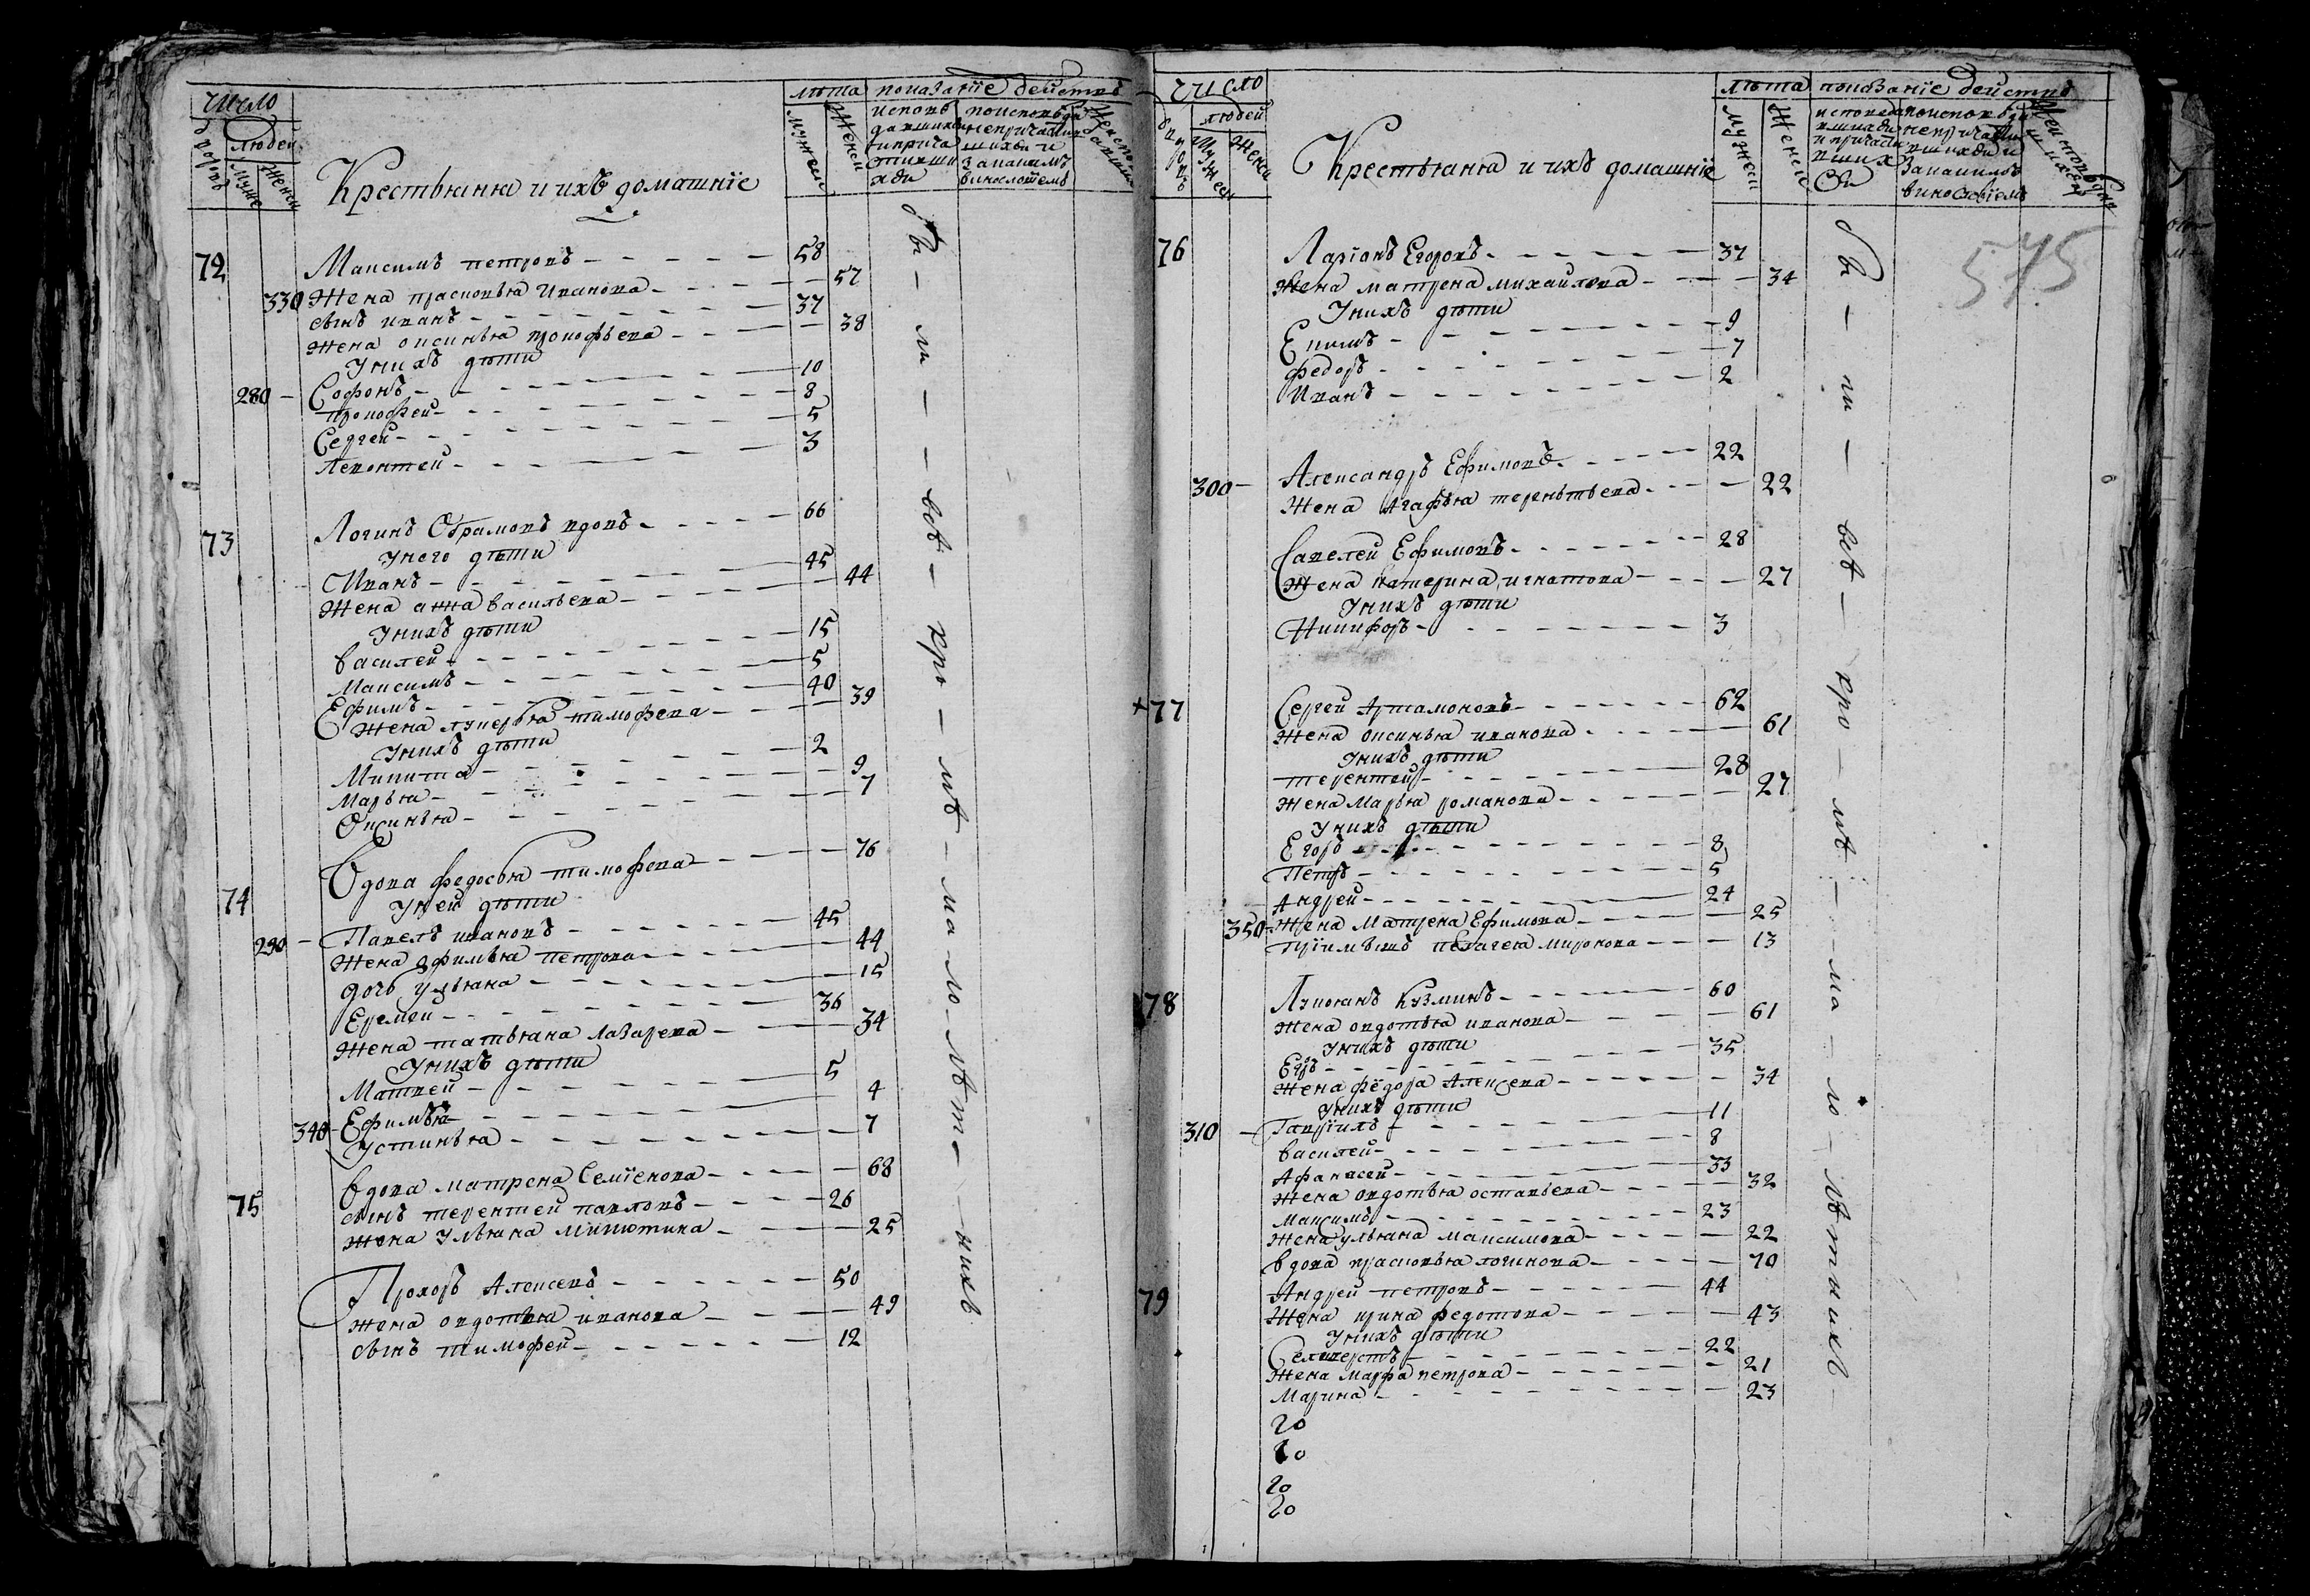 Число
дворовъ
людей
мужес
женск
Крестьяня и ихъ домашніе
лѣта
мужеи
женск
показаніе действъ
72
Максимъ петровъ 58
330 Жена прасковья Иванова 57
сынъ иванъ 37
Жена оксинья прокофьева 38
Унихъ дѣти
280 Софонъ 10
прокофеи 8
Сергеи 5
Левонтеи 3
73
Логинъ Обрамовъ вдовъ 66
Унего дѣти
Иванъ 45
Жена анна васильева 44
Унихъ дѣти
василеи 15
Максимъ 5
Ефимъ 40
Жена лукерья тимофева 39
Унихъ дѣти
Микита 2
Марья 9
Оксинья 7
74
Вдова федосья тимофева 76
Унеи дѣти
290 Павелъ ивановъ 45
Жена офимья петрова 44
дочь ульяна 15
Еремеи 36
Жена татьяна лазарева 34
Унихъ дѣти
Матвеи 5
340 Ефимья 4
Устинья 7
75
Вдова матрена Семіенова 68
сынъ терентеи павловъ 26
Жена Ульяна микитина 25
Прохоръ Алексевъ 50
Жена овдотья иванова 49
сынъ тимофеи 12
бы – ли – – всѣ – кро – мѣ – ма – ло – лѣт – – нихъ
число
людей
мужеск
женск
Крестьяня и ихъ домашніе
лѣта
мужеск
женске
показаніе действъ
575
76
Ларіонъ Егоровъ 37
Жена матрена михаилова 34
Унихъ дѣти
Екимъ 9
федоръ 7
Иванъ 2
Александръ Ефимовъ 22
300 Жена Агафья тереньтьева 22
Савелеи Ефимовъ 28
Жена катерина игнатова 27
Унихъ дѣти
Никифоръ 3
77
Сергеи Артамоновъ 62
Жена оксинья иванова 61
Унихъ дѣти
терентеи 28
Жена Марья романова 27
Унихъ дѣти
Егоръ 8
Петръ 5
Андреи 24
350 Жена Матрена Ефимова 25
пріимышъ пелагея миронова 13
78
Лукиянъ Кузминъ 60
Жена овдотья иванова 61
Унихъ дѣти
Егоръ 35
Жена федора Алексева 34
Унихъ дѣти
310 Гавріилъ 11
василеи 8
Афанасеи 33
Жена овдотья остапьева 32
Максимъ 23
Жена ульяна максимова 22
вдова прасковья логинова 70
79
Андреи петровъ 44
Жена ирина федотова 43
Унихъ дѣти
Селиверстъ 22
Жена марфа петрова 21
Марина 23
20
20
20
20
бы – ли – всѣ – кро – мѣ – – ма – ло – лѣтнихъ